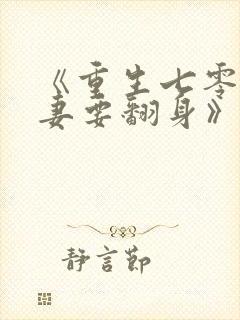 《重生七零
妻要翻身》
静言节